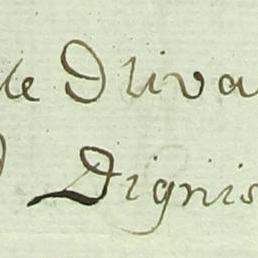 le Oliva
Dignis